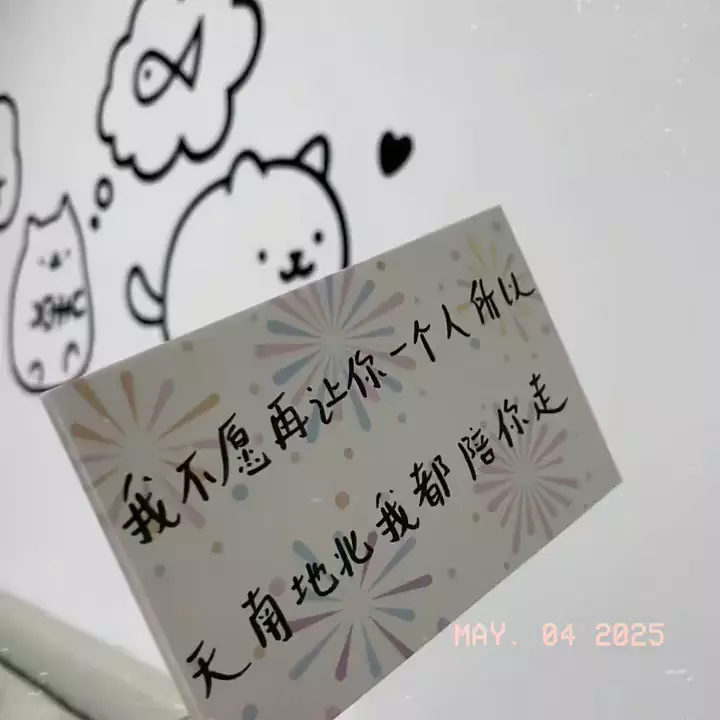 我不愿再让你一个人所以
天南地北我都陪你走
MAY. 04 2025